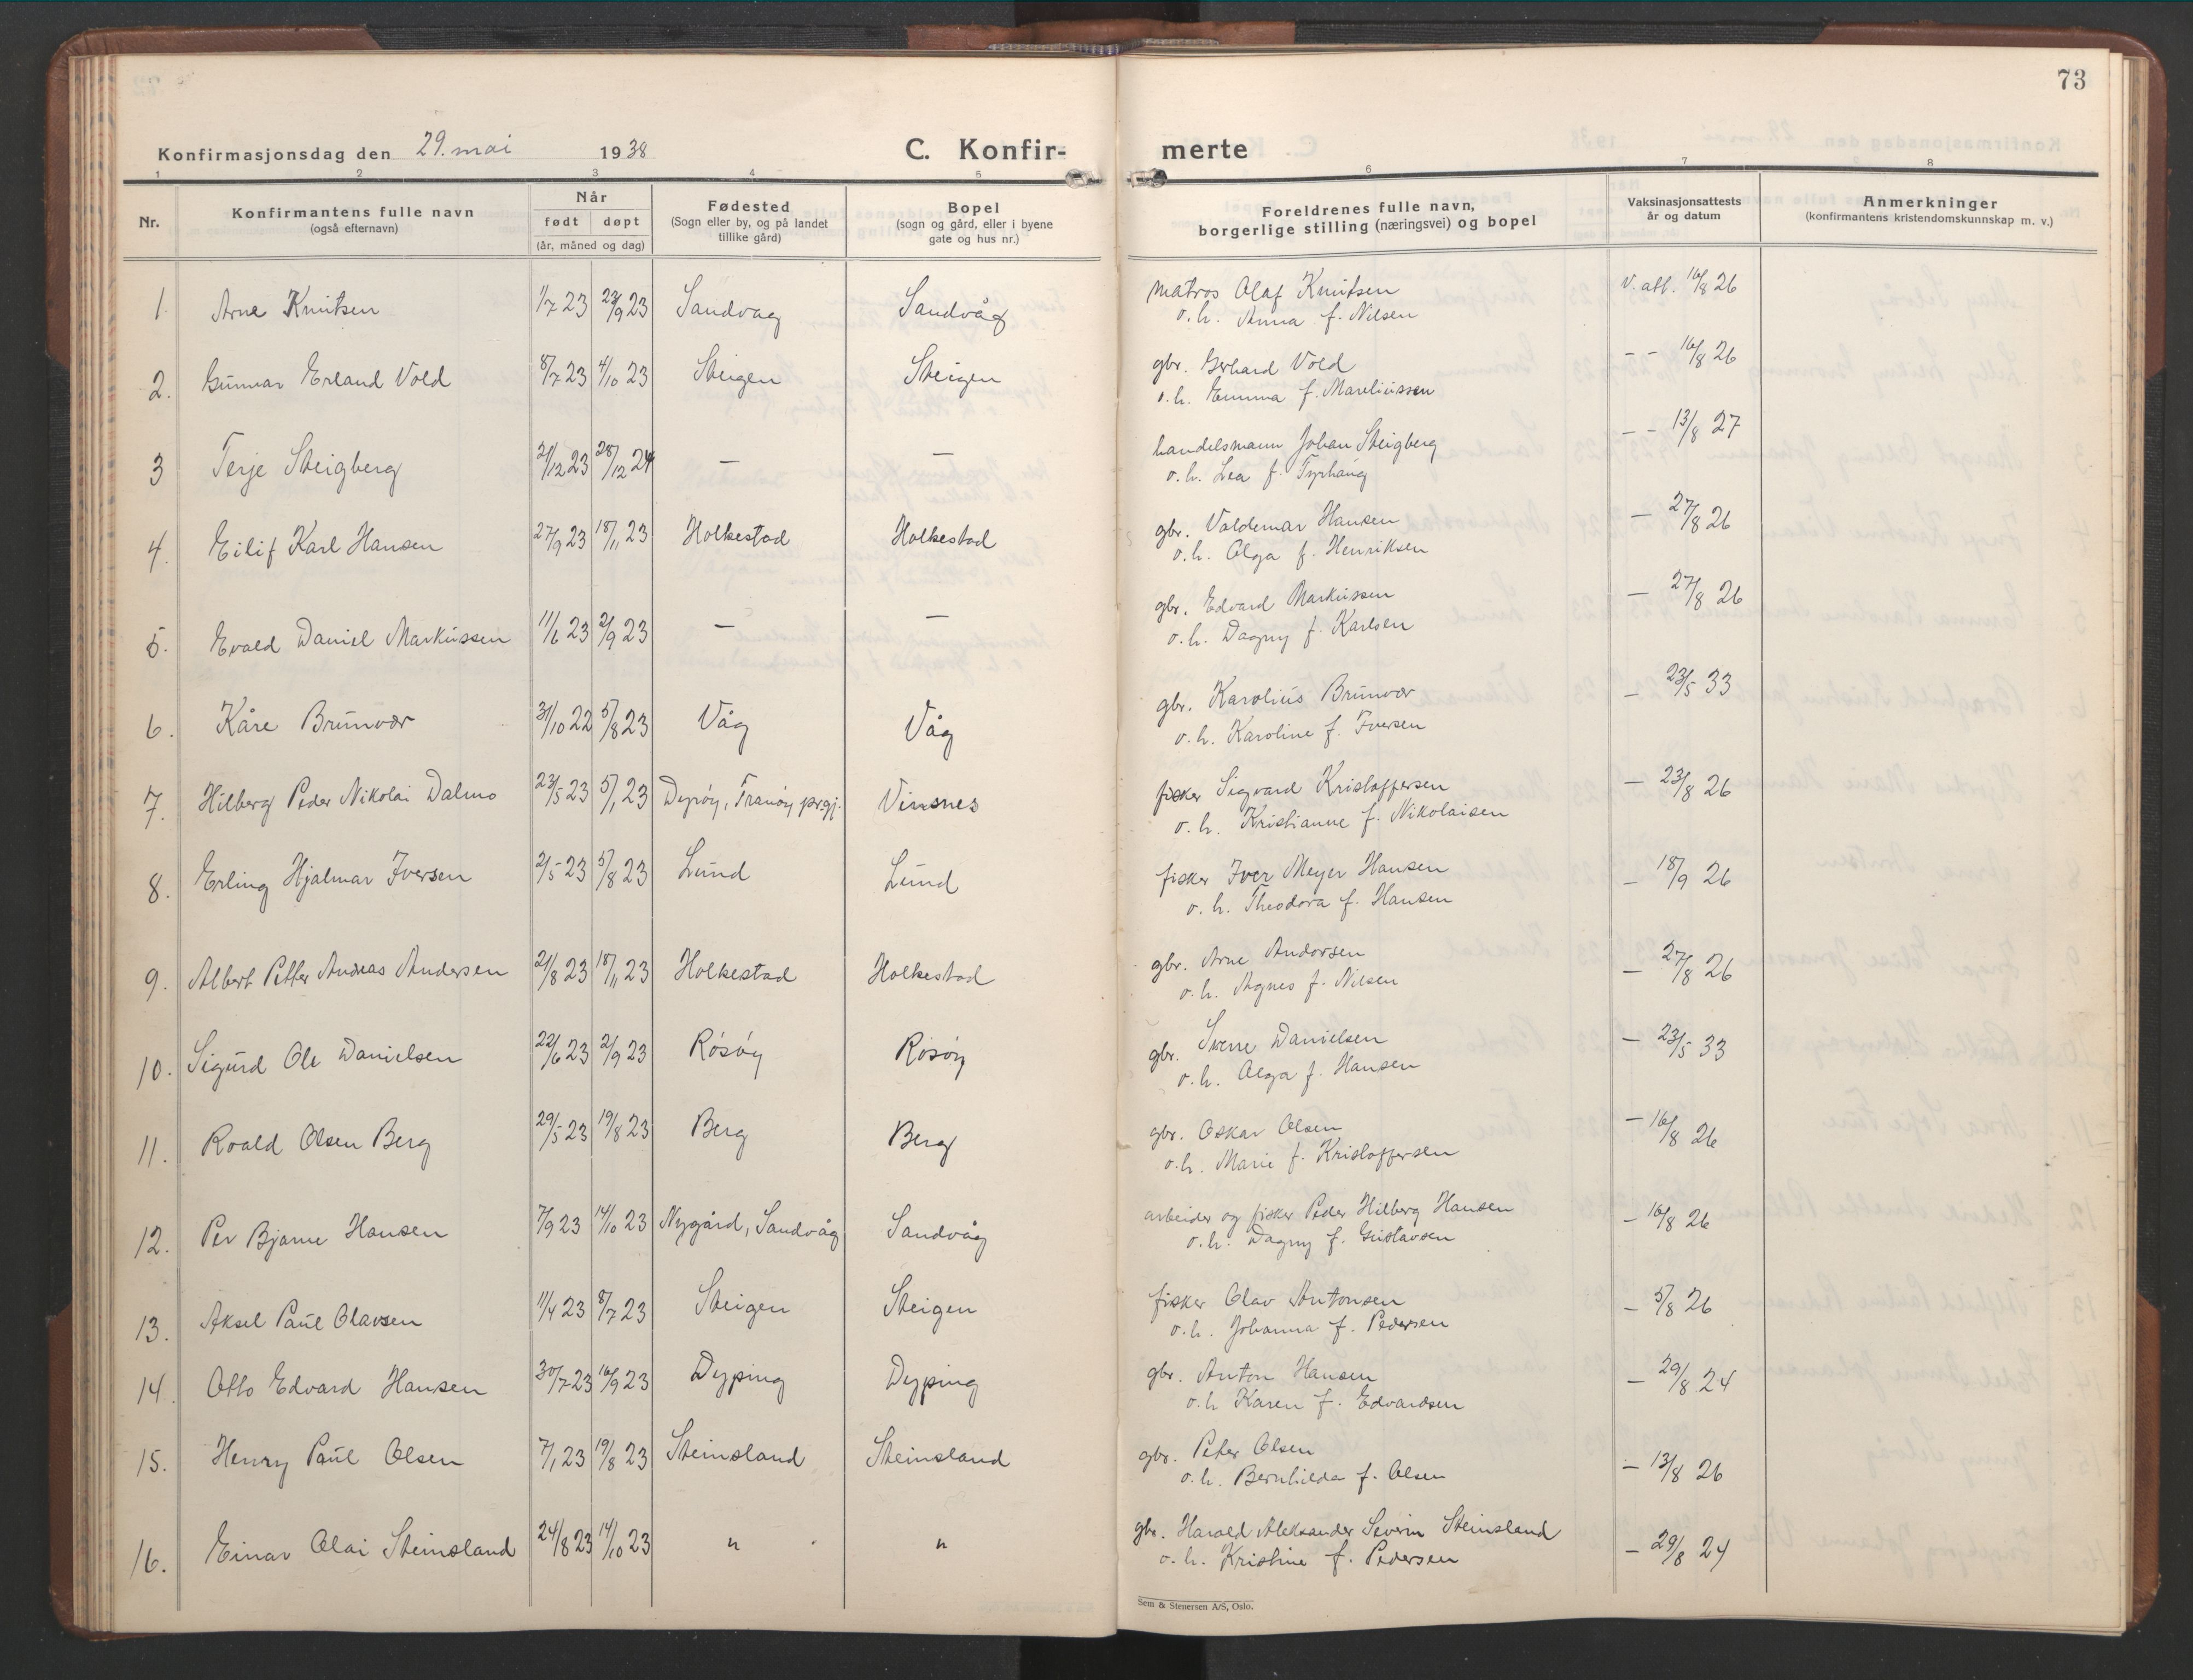 73
Konfirmasjonsdag den 29. mai 1938 C. Konfir- merte
1 2 3 4 5 6 7 8
Nr. Konfirmantens fulle navn (også efternavn) Når født døpt (år, måned og dag) Fødested (Sogn eller by, og på landet tillike gård) Bopel (sogn og gård, eller i byene gate og hus nr.) Foreldrenes fulle navn, borgerlige stilling (næringsvei) og bopel Vaksinasjonsattests år og datum Anmerkninger (konfirmantens kristendomskunnskap m. v.)
1. Arne Knutsen 1/7 23 23/9 23 Sandvåg Sandvåg matros Olaf Knutsen V. att. 16/8 26
o. h. Anna f. Nilsen
2. Gunnar Erland Vold 8/7 23 4/10 23 Steigen Steigen gbr. Gerhard Vold - - 16/8 26
o. h. Emma f. Mareliussen
3 Terje Steigberg 21/12 23 28/12 24 — — handelsmann Johan Steigberg - - 13/8 27
o. h. Lea f. Tyrhaug
4. Eilif Karl Hansen 27/9 23 18/11 23 Holkestad Holkestad gbr. Valdemar Hansen — 27/8 26
o. h. Olga f. Henriksen
5. Evald Daniel Markussen 11/6 23 2/9 23 — — gbr. Edvard Markussen — 27/8 26
o. h. Dagny f. Karlsen
6. Kåre Brunvær 31/10 22 5/8 23 Våg Våg gbr. Karolius Brunvær — 23/5 33
o. h. Karoline f. Iversen
7. Hilberg Peder Nikolai Dalmo 23/5 23 5/1 23 Dyrøy, Tranøy prgj. Vinsnes fisker Sigvard Kristoffersen — 23/8 26
o. h. Kristianne f. Nikolaisen
8. Erling Hjalmar Iversen 2/5 23 5/8 23 Lund Lund fisker Iver Meyer Hansen — 18/9 26
o. h. Theodora f. Hansen
9. Albert Petter Andreas Andersen 21/8 23 18/11 23 Holkestad Holkestad gbr. Arne Andorsen — 27/8 26
o. h. Agnes f. Nilsen
10. Sigurd Ole Danielsen 22/6 23 2/9 23 Røsøy Røsøy gbr. Sverre Danielsen — 23/5 33
o. h. Olga f. Hansen
11. Roald Olsen Berg 29/5 23 19/8 23 Berg Berg gbr. Oskar Olsen — 16/8 26
o. h. Marie f. Kristoffersen
12. Per Bjarne Hansen 7/9 23 14/10 23 Nygård, Sandvåg Sandvåg arbeider og fisker Peder Hilberg Hansen — 16/8 26
o. h. Dagny f. Gustavsen
13. Aksel Paul Olavsen 11/4 23 8/7 23 Steigen Steigen fisker Olav Antonsen — 5/8 26
o. h. Johanna f. Pedersen
14. Otto Edvard Hansen 30/7 23 16/9 23 Dyping Dyping gbr. Anton Hansen — 29/8 24
o. h Karen f. Edvardsen
15. Henry Paul Olsen 7/1 23 19/8 23 Steinsland Steinsland gbr. Peter Olsen — 13/8 26
o. h. Bernhilda f. Olsen
16. Einar Olai Steinsland 24/8 23 14/10 23 " " gbr. Harald Aleksander Severin Steinsland — 29/8 24
o. h. Kristine f. Pedersen
Sem & Stenersen A/S, Oslo.